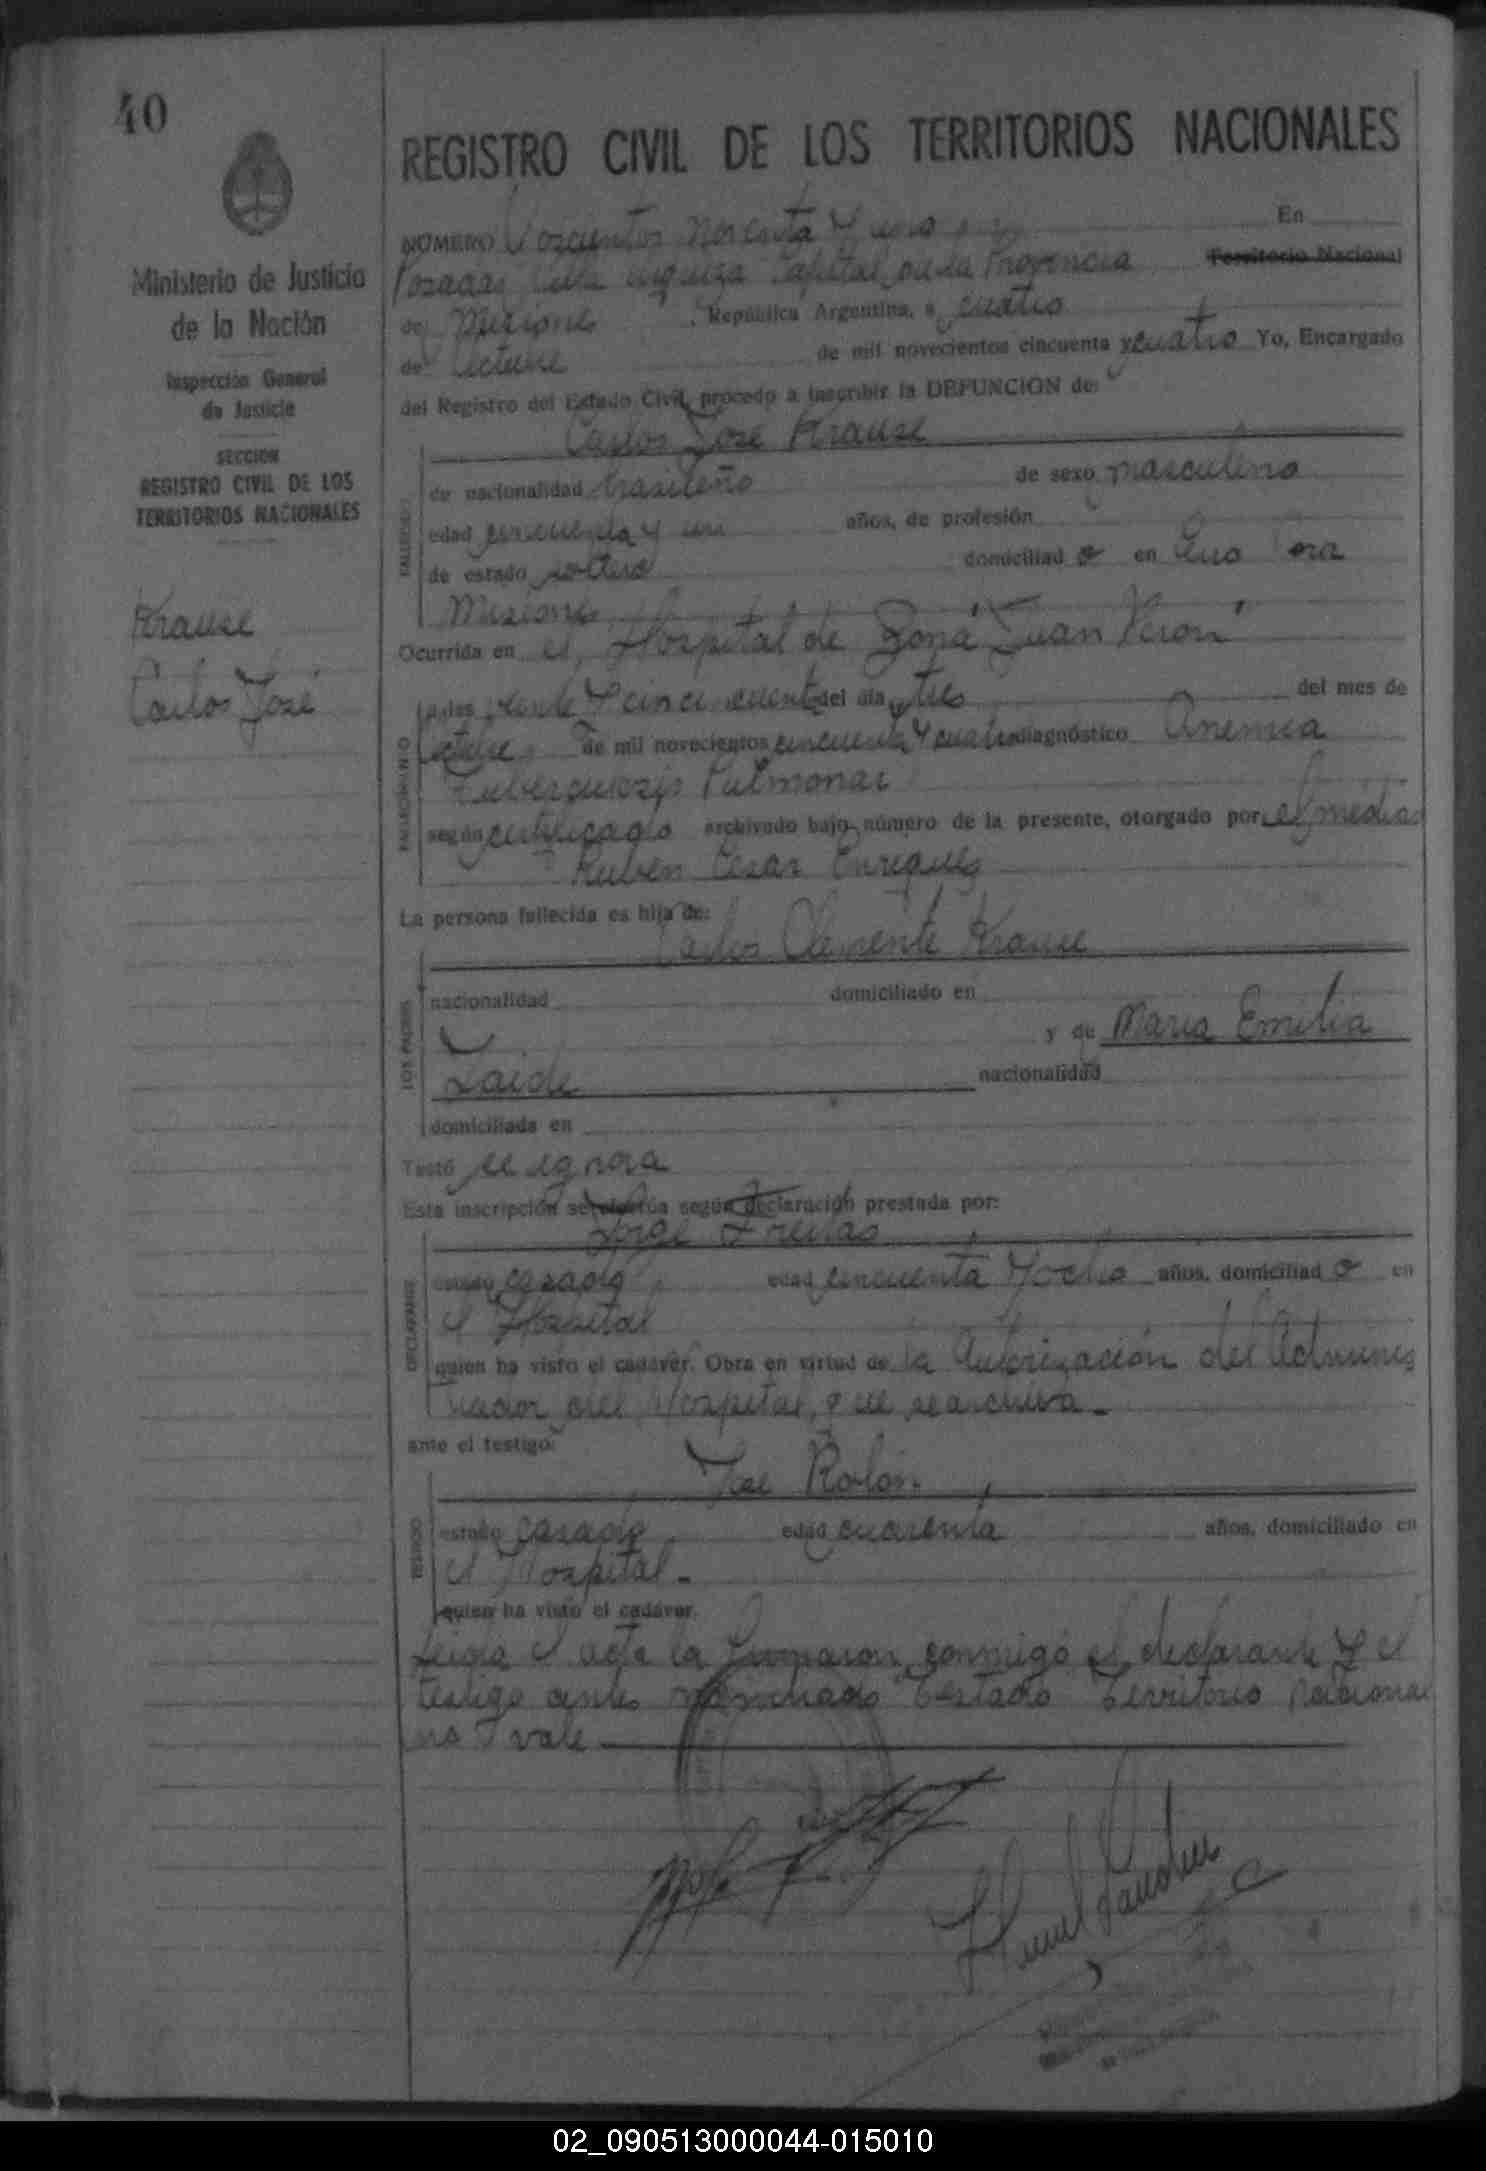 40
REGISTRO CIVIL DE LOS TERRITORIOS NACIONALES
Ministerio de Justicia
de la Nación
Inspección General
de Justicia
SECCION
REGISTRO CIVIL DE LOS
TERRITORIOS NACIONALES
Krause
Carlos José
NUMERO Doscientos noventa y uno En
Posadas Villa Urquiza Capital de la Provincia Territorio Nacional
de Misiones, República Argentina, a cuatro
de Octubre de mil novecientos cincuenta y cuatro Yo, Encargado
del Registro del Estado Civil, procedo a inscribir la DEFUNCION de:
Carlos José Krause
FALLECIDO
de nacionalidad brasileño de sexo masculino
edad cincuenta y un años, de profesión
de estado soltero domiciliado en
Misiones
Ocurrida en el Hospital de Zona "Juan Perón"
FALLECIMIENTO
a las veinte y cinco del día tres del mes de
octubre de mil novecientos cincuenta y cuatro diagnóstico Anemia
Tuberculosis Pulmonar
según certificado archivado bajo número de la presente, otorgado por el médico
Ruben Cesar Enriquez
La persona fallecida es hija de:
Carlos Clemente Krause
LOS PADRES
nacionalidad domiciliado en
y de Maria Emilia
Laide
nacionalidad
domiciliada en
Testó se ignora
Esta inscripción se efectúa según declaración prestada por:
Jorge Freitas
DECLARANTE
estado casado edad cincuenta y ocho años, domiciliado en
el Hospital
quien ha visto el cadáver. Obra en virtud de la Autorización del Adminis
trador del Hospital, que se archiva.-
ante el testigo:
José Rolón
TESTIGO
estado casado edad cuarenta años, domiciliado en
el Hospital.-
quien ha visto el cadáver.
Leida el acta la firmaron conmigo el declarante y el
testigo antes nombrado Testado Territorio Nacional
no vale
02_090513000044-015010